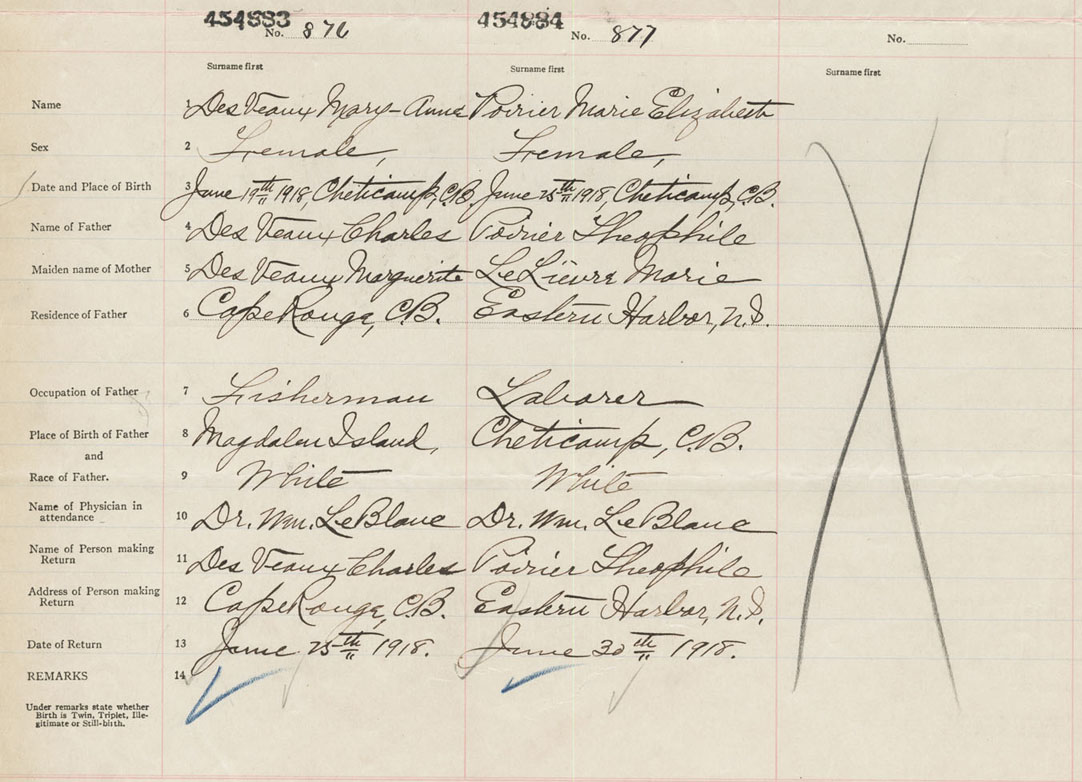 454883 454884
No. 876 No. 877 No.
Surname first Surname first Surname first
Name 1 Des Veaux Mary-Anne Poirier Marie Elizabeth
Sex 2 Female, Female,
Date and Place of Birth 3 June 19th 1918, Cheticamp, C.B. June 25th 1918, Cheticamp, C.B.
Name of Father 4 Des Veaux Charles Poirier Theophile
Maiden name of Mother 5 Des Veaux Marguerite LeLièvre Marie
Residence of Father 6 Cape Rouge, C.B. Eastern Harbor, N.S.
Occupation of Father 7 Fisherman Laborer
Place of Birth of Father 8 Magdalen Island, Cheticamp, C.B.
and
Race of Father. 9 White White
Name of Physician in
attendance 10 Dr. Wm. LeBlanc Dr. Wm. LeBlanc
Name of Person making
Return 11 Des Veaux Charles Poirier Theophile
Address of Person making
Return 12 Cape Rouge, C.B. Eastern Harbor, N.S.
Date of Return 13 June 25th 1918. June 30th 1918.
REMARKS 14
Under remarks state whether
Birth is Twin, Triplet, Ille-
gitimate or Still-birth.